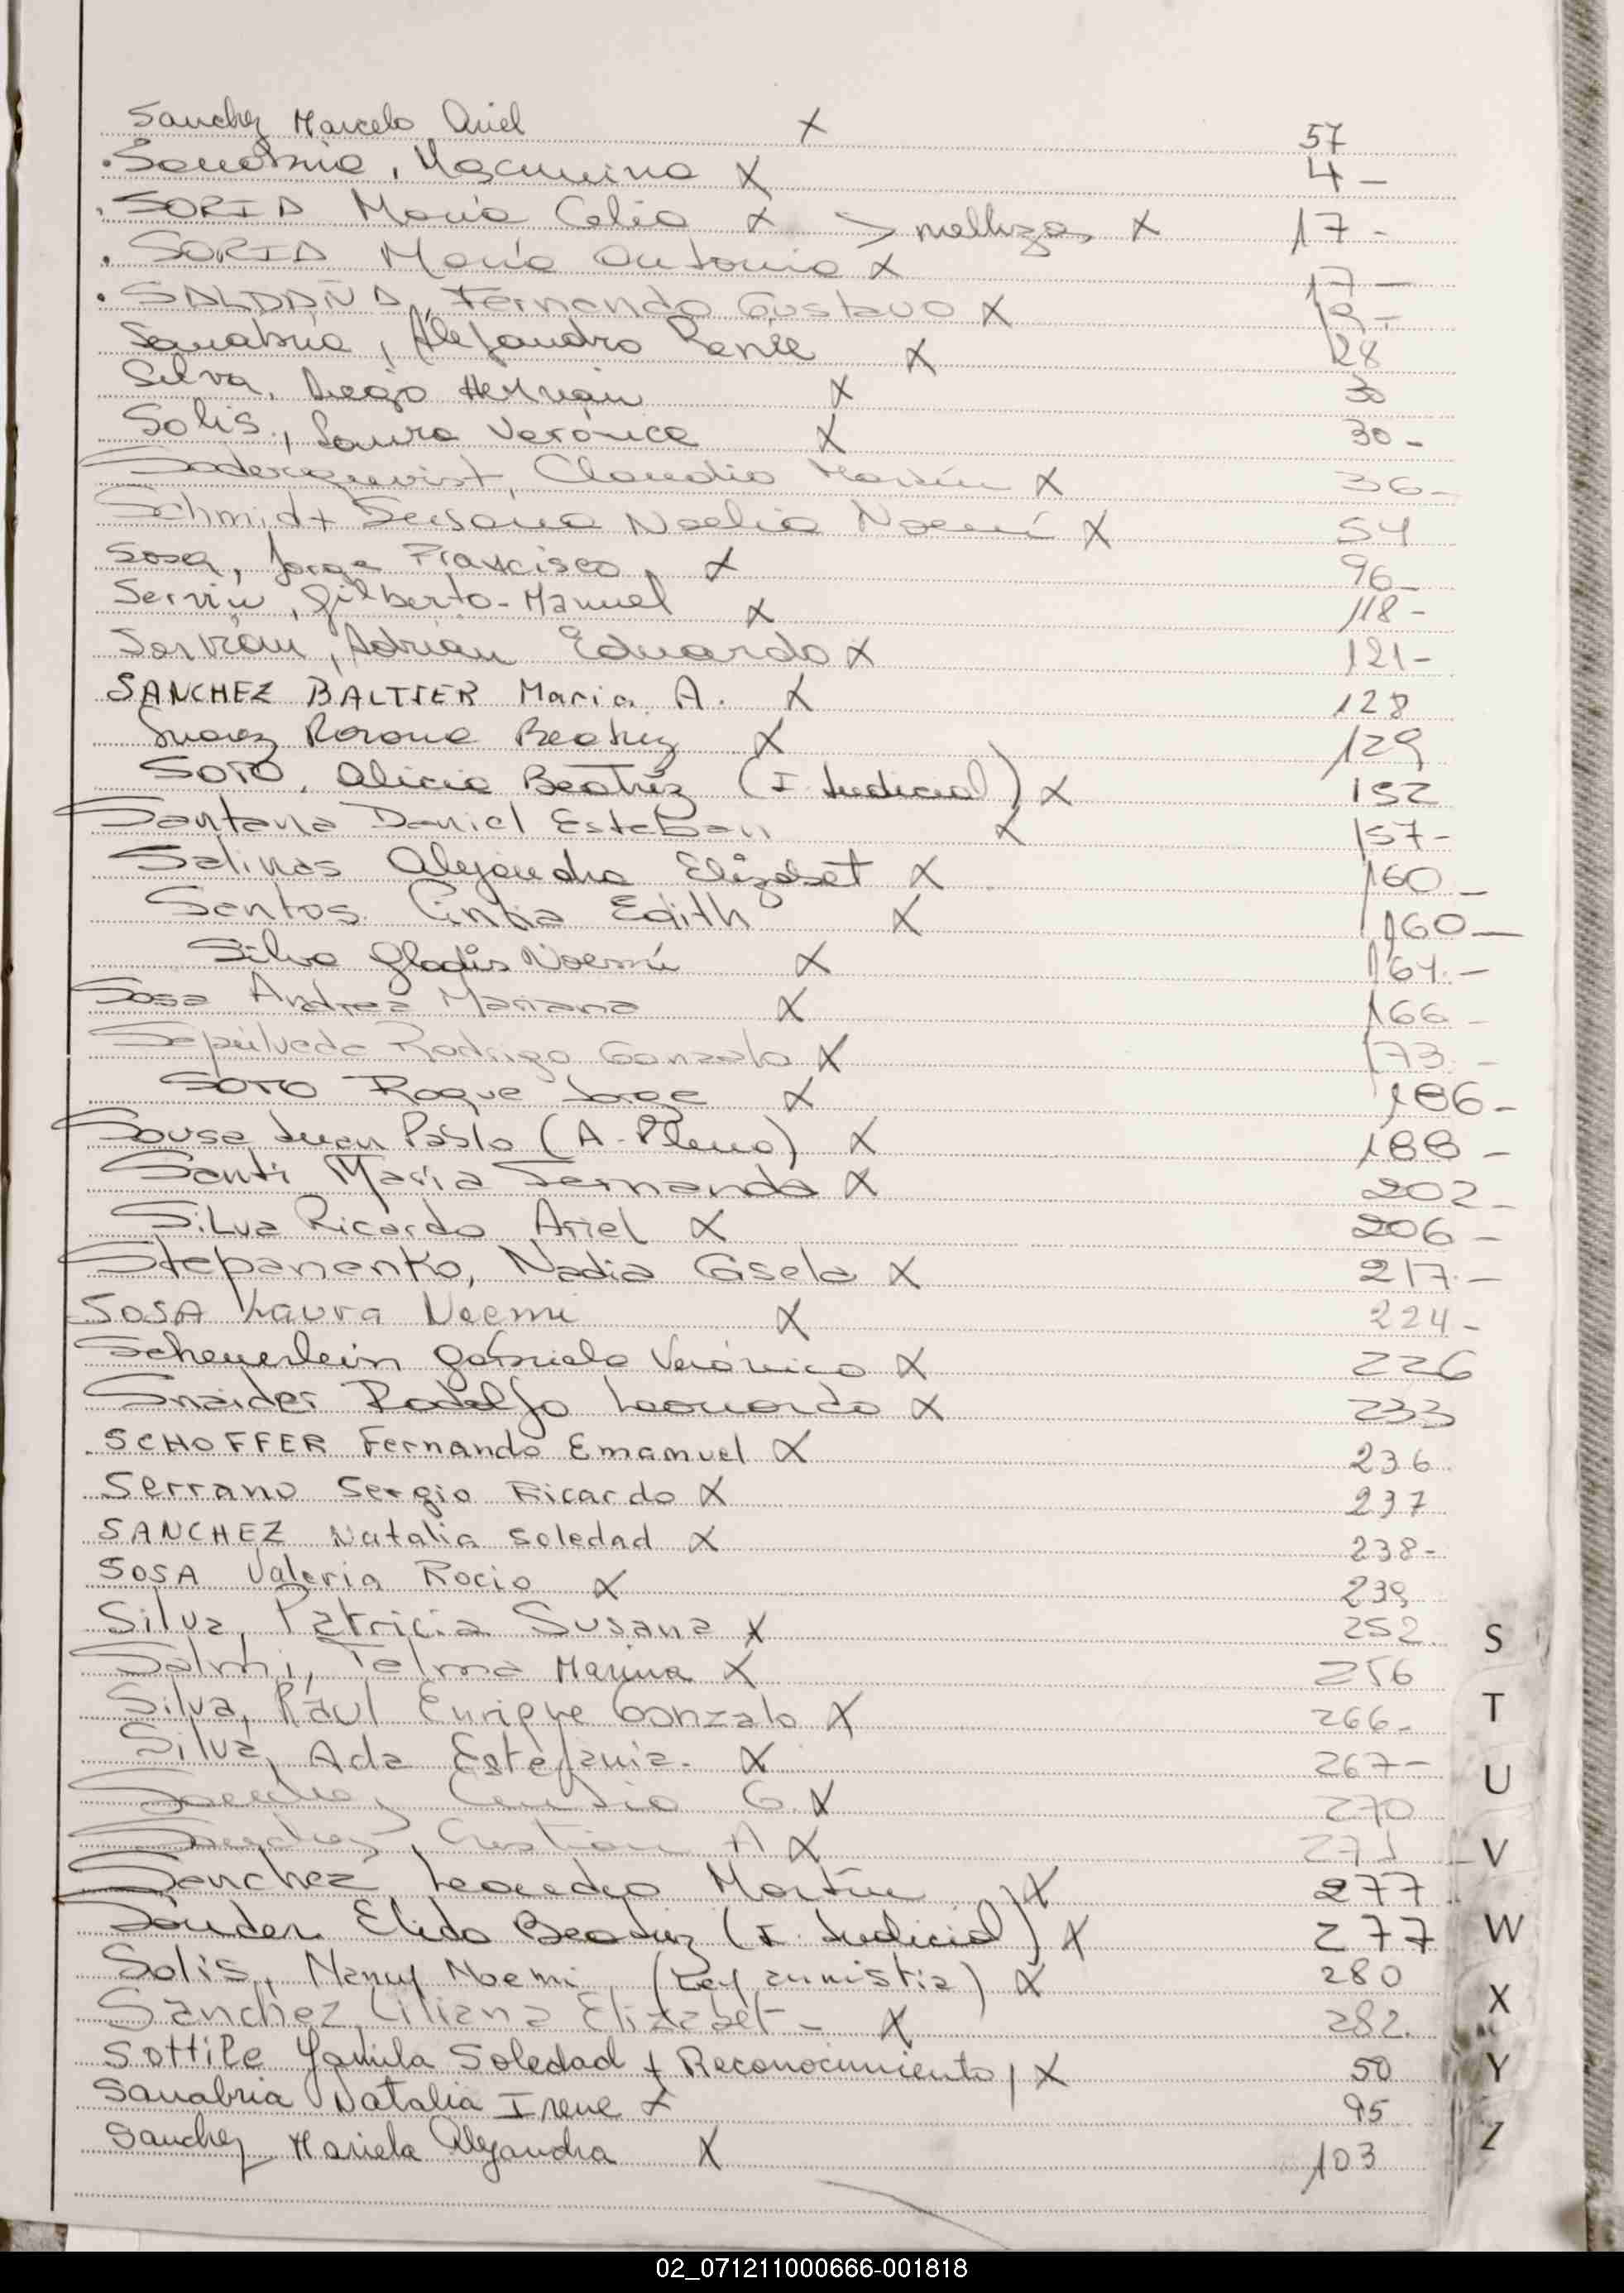 Sanchez Marcelo Ariel X 57
. Sanabria, X 4 -
. SORIA María Celia X > melliza X 17 -
. SORIA María Antonia X 17 -
. SALDAÑA, Fernando Gustavo X 19 -
Sanabria, Alejandro René X 28
Silva, Diego Hernán X 30
Solis, Laura Verónica X 30 -
Soderquvist, Claudio Martín X 36 -
Schmidt Susana Noelia Noemí X 54
Sosa, Jorge Francisco X 96 -
Servin, Gilberto - Manuel X 118 -
Servian, Adrian Eduardo X 121 -
SANCHEZ BALTIER Maria A. X 128
Suarez Rosana Beatriz X 129
SOTO, Alicia Beatríz (I. Judicial) X 152
Santana Daniel Esteban X 157 -
Salinas Alejandra Elizabet X 160 -
Santos Cintia Edith X 160 -
Silva Gladis Noemí X 164. -
Sosa Andrea Mariana X 166 -
Sepúlveda Rodrigo Gonzalo X 173. -
SOTO Roque Jorge X 186 -
Sousa Juan Pablo (A. Pleno) X 188 -
Santi María Fernanda X 202 -
Silva Ricardo Ariel X 206 -
Stepanenko, Nadia Gisela X 217. -
SOSA Laura Noemi X 224 -
Scheuerlein Gabriela Verónica X 226
Snaider Rodolfo Leonardo X 233
SCHOFFER Fernando Emanuel X 236
Serrano Sergio Ricardo X 237
SANCHEZ Natalia Soledad X 238 -
SOSA Valeria Rocio X 239
Silva, Patricia Susana X 252
Salmi, Telma Marina X 256
Silva, Raúl Enrique Gonzalo X 266 -
Silva, Ada Estefania. X 267 -
G. X 270
Sanchez, Cristian A X 271
Sanchez Leandro Martín X 277
Elida Beatriz (I. Judicial) X 277
Solis, Nancy Noemi (Ley amnistia) X 280
Sanchez Liliana Elizabet - X 282.
Sottile Yamila Soledad + Reconocimiento / X 50
Sanabria Natalia Irene X 95
Sanchez Mariela Alejandra X 103
S
T
U
V
W
X
Y
Z
02_071211000666-001818